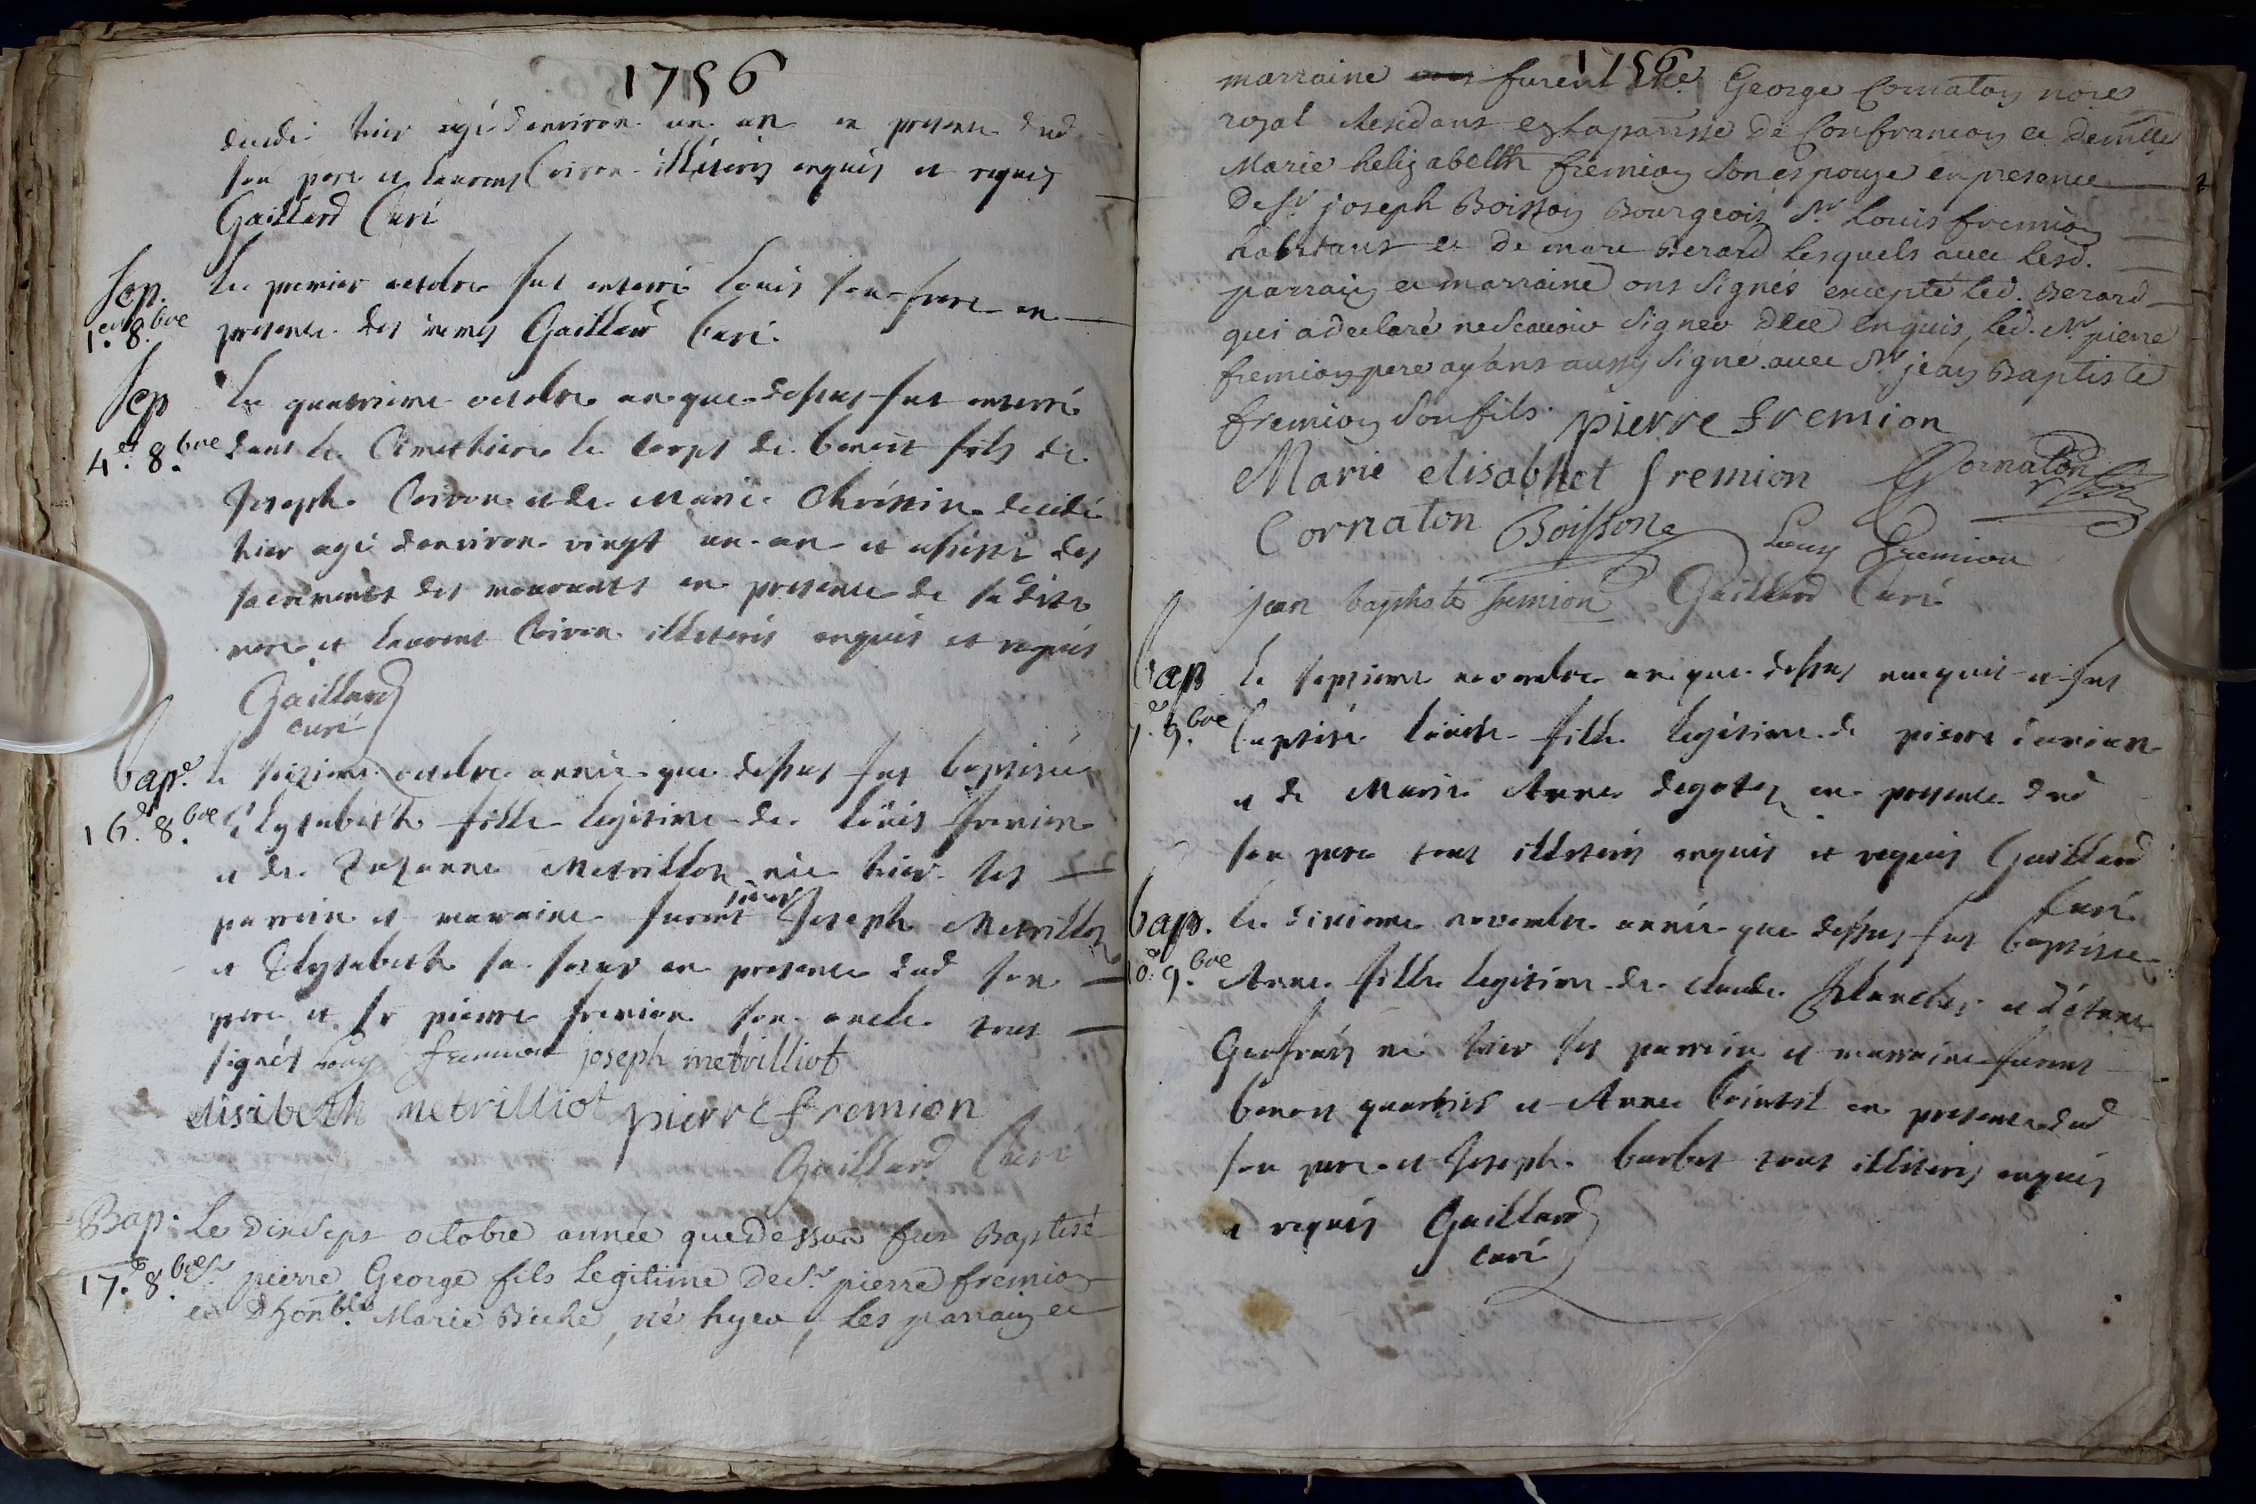 1756
décédé hier agé denviron un an en presence dud
son pere et Laurens Coiron illiteris enquis et requis
Gaillard Curé
Sep. 1.er 8.bre
Le premier octobre fut enterré Louis son frere en
presence des memes Gaillard Curé.
Sep 4.e 8.bre
Le quatrieme octobre an que dessus fut enterré
dans le Cimethiere le corps de benoit fils de
Joseph Coiron et de Marie decedé
hier agé denviron vingt un an et assisté des
sacrements des mourants en presence de sa dite
mere et Laurent Coiron illiteris enquis et requis
Gaillard
curé
bap.e 16.e 8.bre
le seizieme octobre année que dessus fut baptisée
Elysabeth fille legitime de Louis fremion
et de Suzanne Metrilliot née hier ses
parrein et marraine furent sieur Joseph Metrilliot
et Elysabeth sa soeur en presence dud son
pere et sr pierre fremion son oncle tous
signés Louy fremion joseph metrilliot
elisibeth metrilliot pierre fremion
Gaillard Curé
Bap. 17.e 8.bre
Le Dixsept octobre année que dessus fut Baptisé
sr pierre George fils legitime de Sr pierre fremion
et Dhon.ble Marie Biche, né hyer, Les parrain et
1756
marraine furent Me. George Cornaton nore
royal Residant en La parisse de Confrancon et demlle
Marie helizabelth fremion son espouze en presence
de Sr joseph Boisson Bourgeois Sr Louis fremion
habitant et de marc Berard Lesquels avec lesd.
parrain et marraine ont signés excepté led. Berard
qui a declaré ne scavoir signer de ce enquis, led. Sr. pierre
fremion pere ayant aussy signé avec Sr jean Baptiste
fremion son fils. pierre fremion
Marie elisabhet fremion Cornaton
Cornaton Boisson Louy Fremion
jean baptiste fremion Gaillard Curé
bap 7.e 9.bre
le septieme novembre an que dessus naquit et fut
baptisée Louise fille legitime de pierre
et de Marie Anne degoter en presence dud
son pere tous illiteris enquis et requis Gaillard
Curé
bap. 10.e 9.bre
Le dixieme novembre année que dessus fut baptisée
Anne fille legitime de claude et d'étienne
Geofray né hier ses parrein et marraine furent
benoit et Anne en presence dud
son pere et Joseph barbet tous illiteris enquis
et requis Gaillard
curé